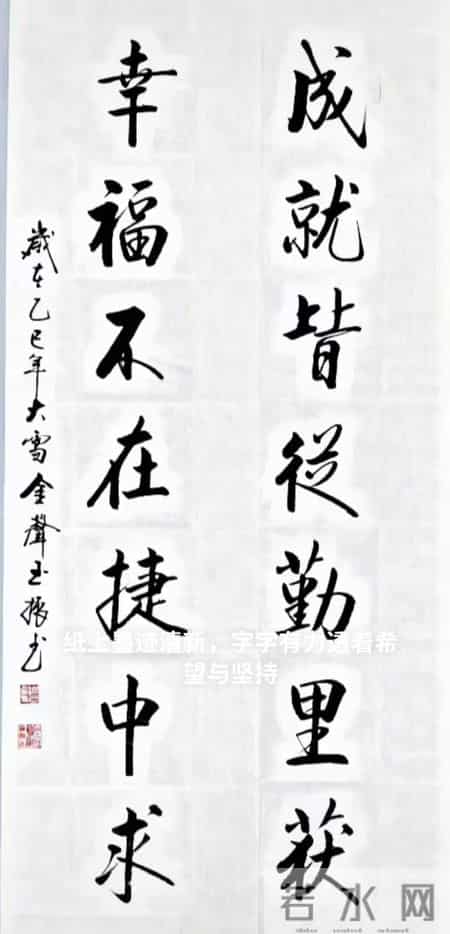 成就皆從勤里获
幸福不在捷中求
歲在乙巳年大雪金聲玉振书
纸上墨迹清新，字字有力透着希
望与坚持
若水网